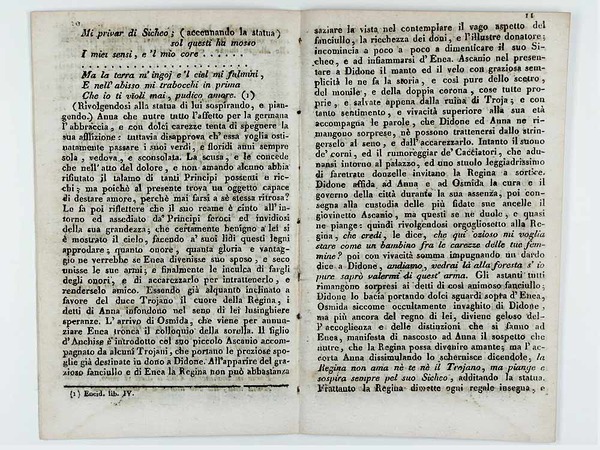 10
Mi privar di Sicheo; (accennando la statua)
sol questi ha mosso
I miei sensi, e 'l mio core . . . . . . .
Ma la terra m'ingoj e 'l ciel mi fulmini,
E nell'abisso mi trabocchi in prima
Che io ti violi mai, pudico amore. (1)
(Rivolgendosi alla statua di lui sospirando, e pian-
gendo.) Anna che nutre tutto l'affetto per la germana
l'abbraccia, e con dolci carezze tenta di spegnere la
sua afflizione: tuttavia disapprova ch' essa voglia osti-
natamente passare i suoi verdi, e floridi anni sempre
sola, vedova, e sconsolata. La scusa, e le concede
che nell'atto del dolore, e non amando alcuno abbia
rifiutato il talamo di tanti Principi possenti e ric-
chi; ma poichè al presente trova un oggetto capace
di destare amore, perchè mai farsi a sè stessa ritrosa?
Le fa poi riflettere che il suo reame è cinto all'in-
torno ed assediato da' Principi feroci ed invidiosi
della sua grandezza; che certamente benigno a lei si
è mostrato il cielo, facendo a' suoi lidi questi legni
approdare; quanto onore, quanta gloria e vantag-
gio ne verrebbe se Enea divenisse suo sposo, e seco
unisse le sue armi; e finalmente le inculca di fargli
degli onori, e di accarezzarlo per intrattenerlo, e
renderselo amico. Essendo già alquanto inclinato a
favore del duce Trojano il cuore della Regina, i
detti di Anna infondono nel seno di lei lusinghiere
speranze. L' arrivo di Osmida, che viene per annun-
ziare Enea tronca il colloquio della sorella. Il figlio
d'Anchise è introdotto col suo piccolo Ascanio accom-
pagnato da alcuni Trojani, che portano le preziose spo-
glie già destinate in dono a Didone. All'apparire del gra-
zioso fanciullo e di Enea la Regina non può abbastanza
(1) Eneid. lib. IV.
11
saziare la vista nel contemplare il vago aspetto del
fanciullo, la ricchezza dei doni, e l'illustre donatore;
incomincia a poco a poco a dimenticare il suo Si-
cheo, e ad infiammarsi d'Enea. Ascanio nel presen-
tare a Didone il manto ed il velo con graziosa sem-
plicità le ne fa la storia, e così pure dello scetro,
del monile, e della doppia corona, cose tutte pro-
prie, e salvate appena dalla ruina di Troja; e con
tanto sentimento, e vivacità superiore alla sua età
accompagna le parole, che Didone ed Anna ne ri-
mangono sorprese, nè possono trattenersi dallo strin-
gerselo al seno, e dall'accarezzarlo. Intanto il suono
de' corni, ed il rumoreggiar de' Cacciatori, che adu-
nansi intorno al palazzo, ed uno stuolo leggiadrissimo
di faretrate donzelle invitano la Regina a sortire.
Didone affida ad Anna e ad Osmida la cura e il
governo della città durante la sua assenza, poi con-
segna alla custodia delle più fidate sue ancelle il
giovinetto Ascanio, ma questi se ne duole, e quasi
ne piange: quindi rivolgendosi orgogliosetto alla Re-
gina, che credi, le dice, che qui ozioso mi voglia
stare come un bambino fra le carezze delle tue fem-
mine? poi con vivacità somma impugnando un dardo
dice a Didone, andiamo, vedrai là alla foresta s' io
pure saprò valermi di quest' arma. Gli astanti tutti
rimangono sorpresi ai detti di così animoso fanciullo;
Didone lo bacia portando dolci sguardi sopra d' Enea,
Osmida siccome occultamente invaghito di Didone,
ma più ancora del regno di lei, diviene geloso del-
l' accoglienza e delle distinzioni che si fanno ad
Enea, manifesta di nascosto ad Anna il sospetto che
nutre, che la Regina possa divenire amante; ma l'ac-
corta Anna dissimulando lo schernisce dicendole, la
Regina non ama nè te nè il Trojano, ma piange e
sospira sempre pel suo Sicheo, additando la statua.
Frattanto la Regina dimette ogni regale insegna, e